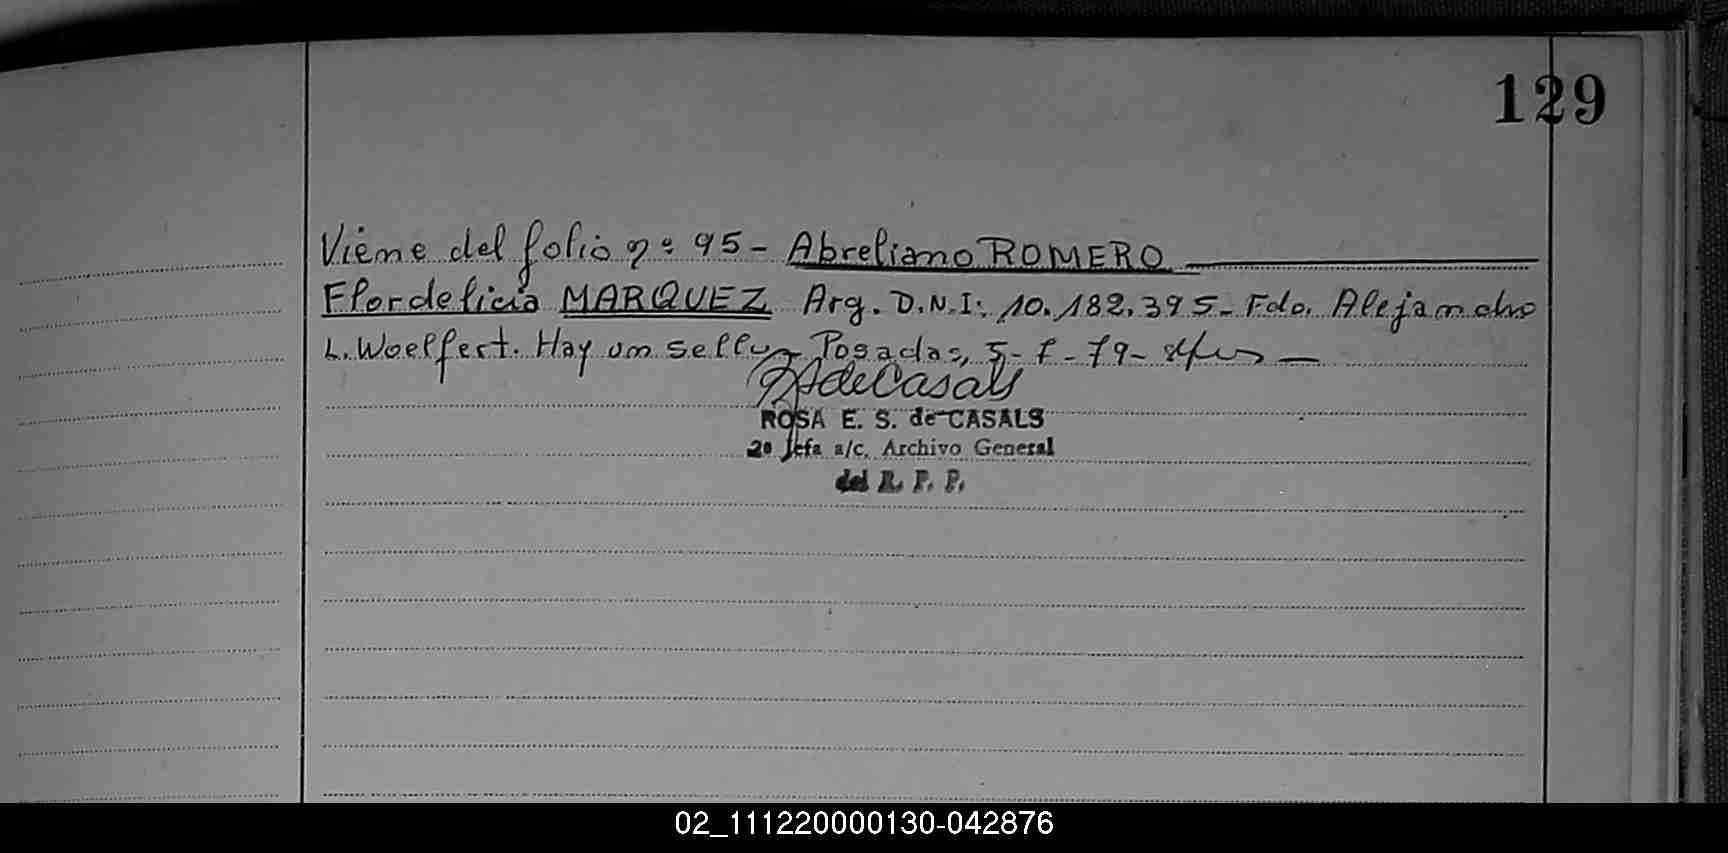 129
Viene del folio nº 95- Abreliano ROMERO
Flordelicia MARQUEZ Arg. D.N.I: 10.182.395- Fdo. Alejandro
L. Woelfert. Hay un sello- Posadas, 5-
79-
RAdeCasals
ROSA E. S. de CASALS
2º Jefa a/c. Archivo General
del R. P. P.
02_111220000130-042876